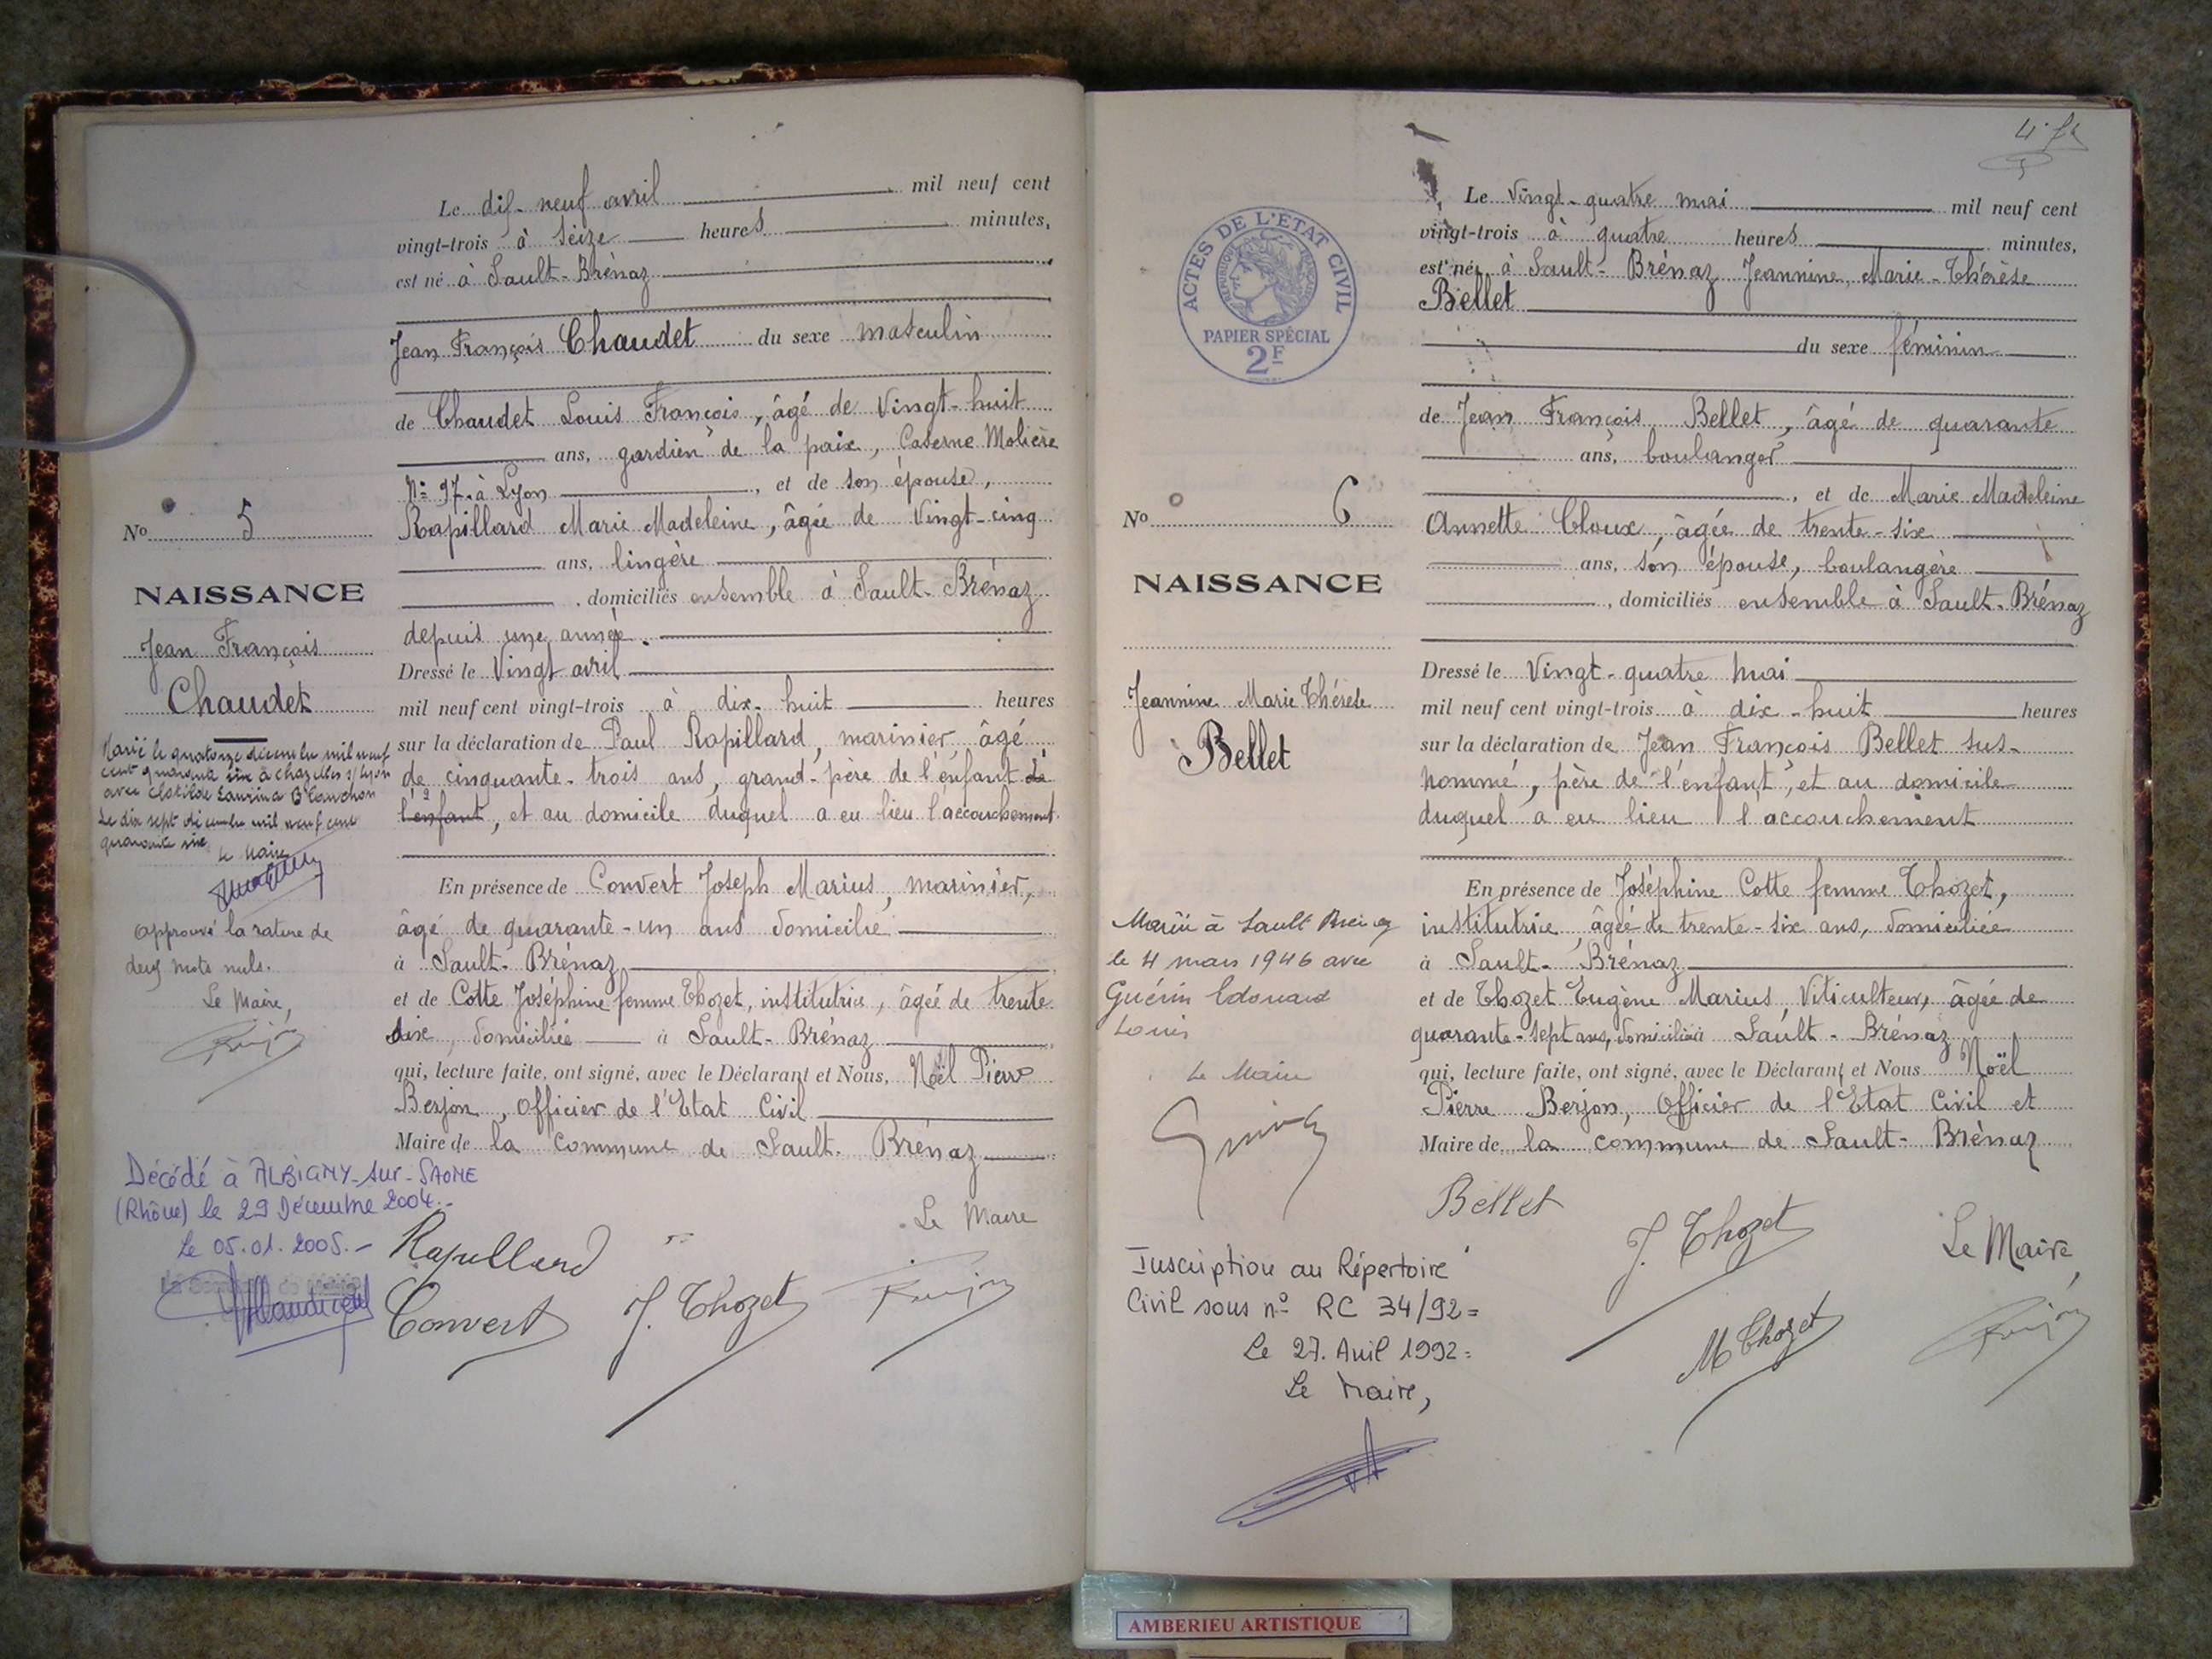 Le dix-neuf avril mil neuf cent
vingt-trois à seize heures minutes,
est né à Sault-Brénaz
Jean François Chaudet du sexe masculin
de Chaudet Louis François, âgé de Vingt-huit
ans, gardien de la paix, Caserne Molière
N° 97 à Lyon, et de son épouse,
Rapillard Marie Madeleine, âgée de Vingt-cinq
ans, lingère
, domiciliés ensemble à Sault-Brénaz
depuis une année.
Dressé le Vingt avril
mil neuf cent vingt-trois à dix-huit heures
sur la déclaration de Paul Rapillard, marinier, âgé
de cinquante-trois ans, grand-père de l'enfant de
l'enfant, et au domicile duquel a eu lieu l'accouchement.
En présence de Convert Joseph Marius, marinier,
âgé de quarante-un ans domicilié
à Sault-Brénaz
et de Cotte Joséphine femme Thozet, institutrice, âgée de trente
six, domiciliée à Sault-Brénaz
qui, lecture faite, ont signé, avec le Déclarant et Nous, Noël Pierre
Berjon, Officier de l'Etat Civil
Maire de la Commune de Sault-Brénaz
Le Maire
Rapillard
Convert
J. Thozet
No 5
NAISSANCE
Jean François
Chaudet
Marié le quatorze décembre mil neuf
cent quarante six à Chazelles s/ Lyon
avec Clotilde
Le dix sept décembre mil neuf cent
quarante six
Le Maire
approuvé la rature de
deux mots nuls.
Le Maire,
Décédé à ALBIGNY-sur-SAONE
(Rhône) le 29 Décembre 2004.-
Le 05.01.2005.-
ACTES DE L'ETAT CIVIL
REPUBLIQUE FRANÇAISE
PAPIER SPÉCIAL
2F
Le Vingt-quatre mai mil neuf cent
vingt-trois à quatre heures minutes,
est née à Sault-Brénaz Jeannine, Marie-Thérèse
Bellet
du sexe féminin
de Jean François Bellet, âgé de quarante
ans, boulanger
, et de Marie Madeleine
Annette Cloux, âgée de trente-six
ans, son épouse, boulangère
, domiciliés ensemble à Sault-Brénaz
Dressé le Vingt-quatre mai
mil neuf cent vingt-trois à dix-huit heures
sur la déclaration de Jean François Bellet sus-
nommé, père de l'enfant, et au domicile
duquel a eu lieu l'accouchement
En présence de Joséphine Cotte femme Thozet,
institutrice, âgée de trente-six ans, domiciliée
à Sault-Brénaz
et de Thozet Eugène Marius, Viticulteur, âgée de
quarante-sept ans, domicilié à Sault-Brénaz
qui, lecture faite, ont signé, avec le Déclarant et Nous Noël
Pierre Berjon, Officier de l'Etat Civil et
Maire de la commune de Sault-Brénaz
Bellet
J. Thozet
Le Maire,
M Thozet
No 6
NAISSANCE
Jeannine Marie Thérèse
Bellet
Mariée à Sault Brénaz
le 4 mars 1946 avec
Guérin Edouard
Louis
Le Maire
Inscription au Répertoire
Civil sous n° RC 34/92=
Le 27. Avril 1992=
Le Maire,
AMBERIEU ARTISTIQUE